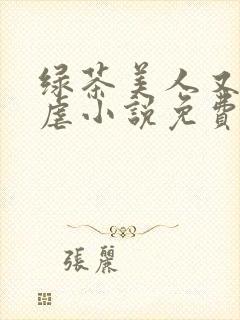 绿茶美人又
虐小說免費
張麗